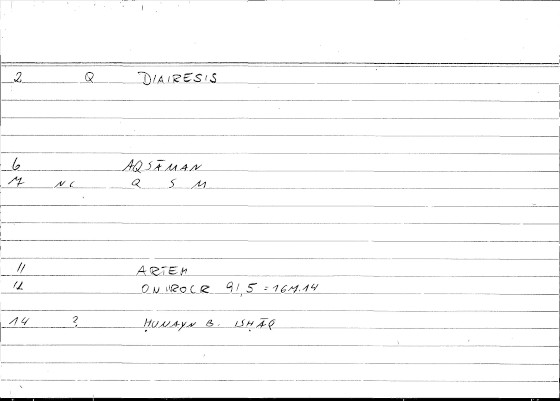 2 Q DIAIRESIS
6 AQSĀMAN
7 NC Q S M
11 ARTEM
12 ONIROCR 91,5 = 164.14
14 ? ḤUNAYN B. ISḤĀQ